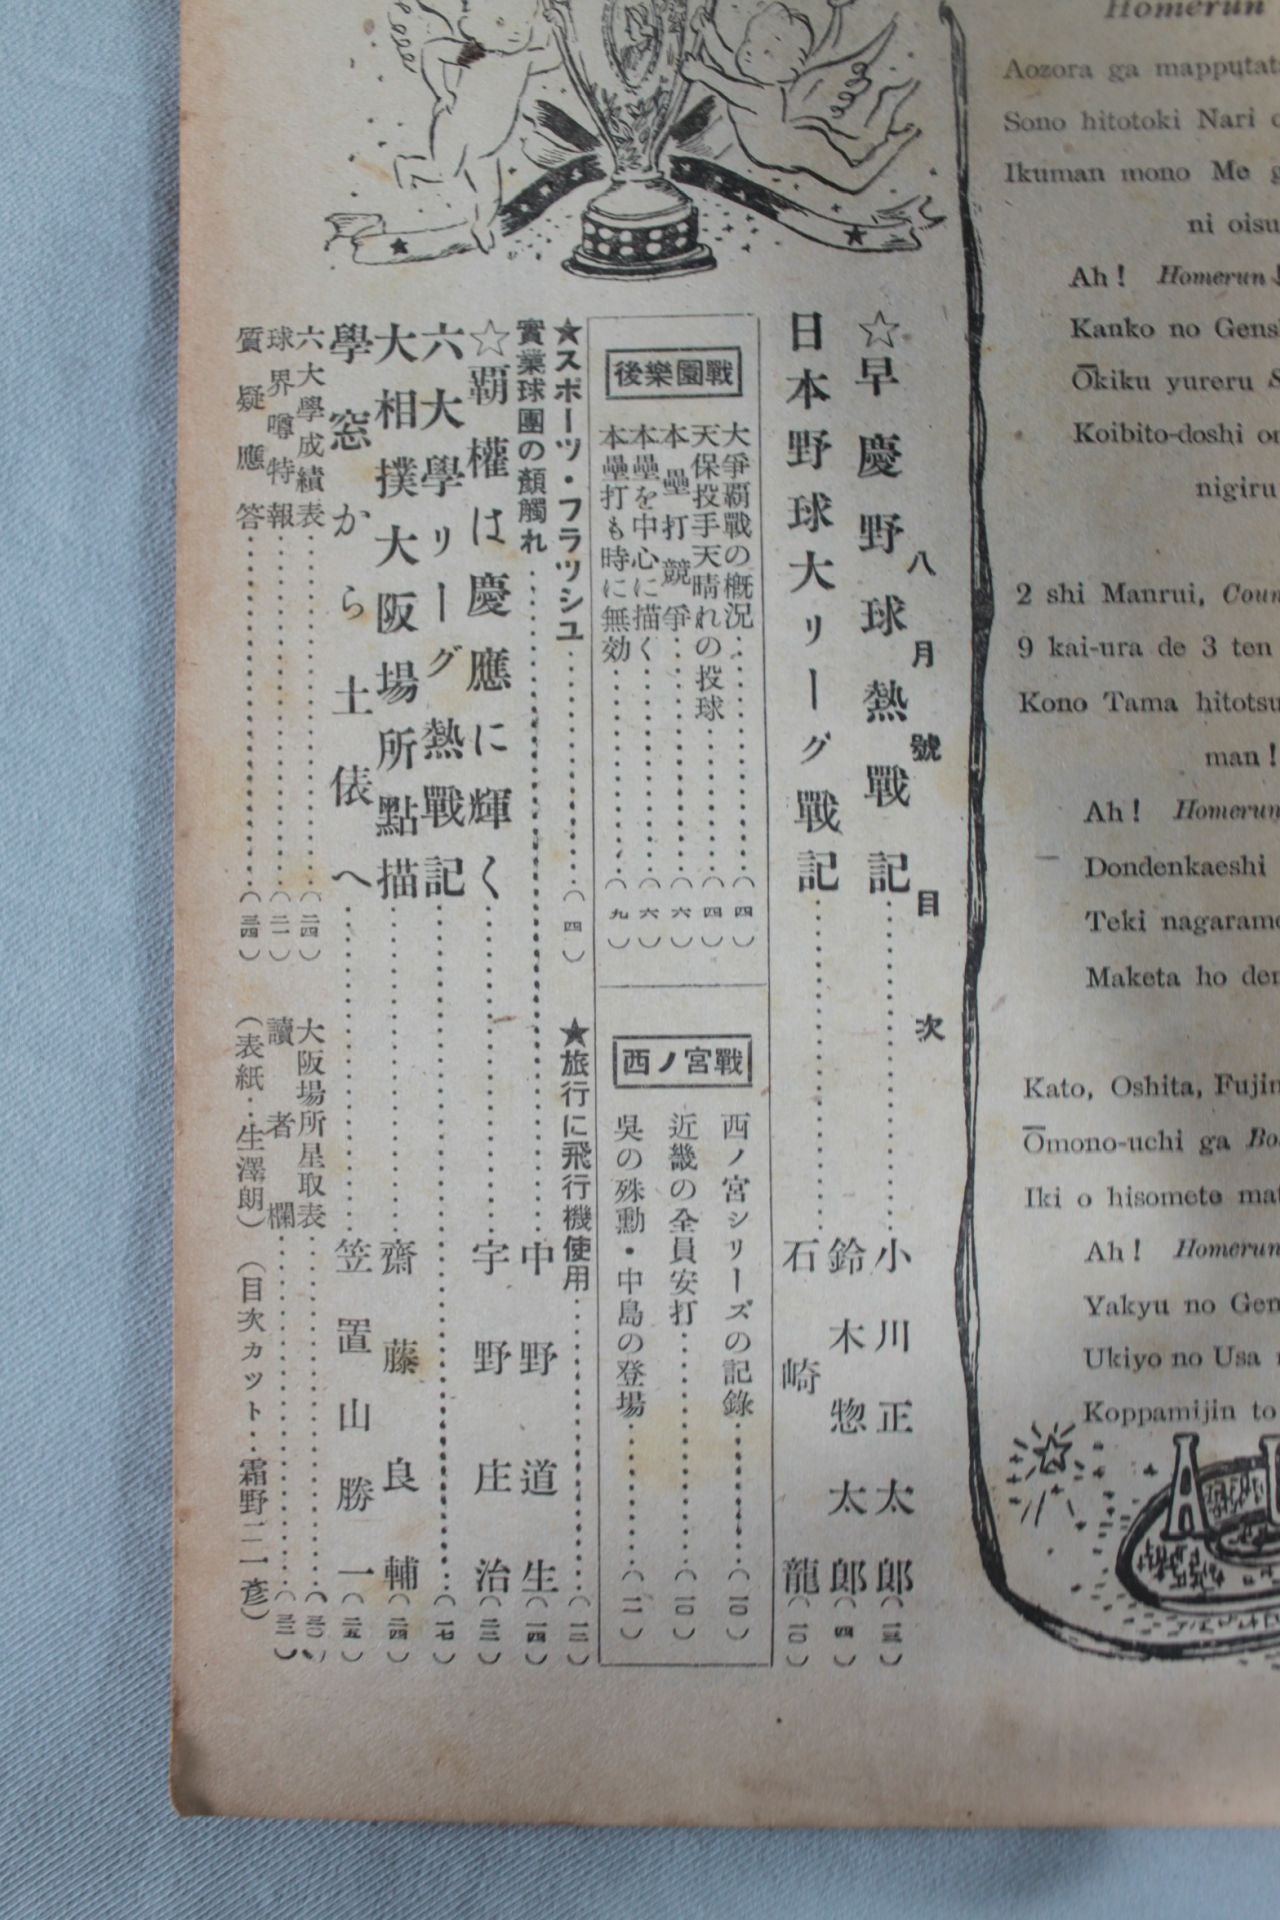 Homerun
Aozora ga mapputat
Sono hitotoki Nari
Ikuman mono Me
ni oisu
Ah! Homerun
Kanko no Gens
Ōkiku yureru
Koibito-doshi
nigiru
2 shi Manrui, Coun
9 kai-ura de 3 ten
Kono Tama hitotsu
man!
Ah! Homerun
Dondenkaeshi
Teki nagaramo
Maketa ho de
Kato, Oshita, Fujim
Ōmono-uchi ga
Iki o hisomete mat
Ah! Homerun
Yakyu no Gen
Ukiyo no Usa
Koppamijin to
八月號目次
☆早慶野球熱戰記……小川正太郎(一三)
日本野球大リーグ戰記……鈴木惣太郎(四)
石崎龍(一〇)
後樂園戰
大爭覇戰の概況……(四)
天保投手天晴れの投球……(四)
本壘打競爭……(六)
本壘を中心に描く……(六)
本壘打も時に無効……(九)
西ノ宮戰
西ノ宮シリーズの記錄……(一〇)
近畿の全員安打……(一〇)
吳の殊勳・中島の登場……(一一)
★スポーツ・フラッシユ……(四)
★旅行に飛行機使用……(一二)
實業球團の顏觸れ……中野道生(一四)
☆覇權は慶應に輝く……宇野庄治(二二)
六大學リーグ熱戰記……(一七)
大相撲大阪場所點描……齋藤良輔(二四)
學窓から土俵へ……笠置山勝一(二五)
六大學成績表……(二四)
大阪場所星取表……(三〇)
球界噂特報……(二一)
讀者欄……(三二)
質疑應答……(三四)
(表紙‥生澤朗)(目次カット‥霜野二一彥)